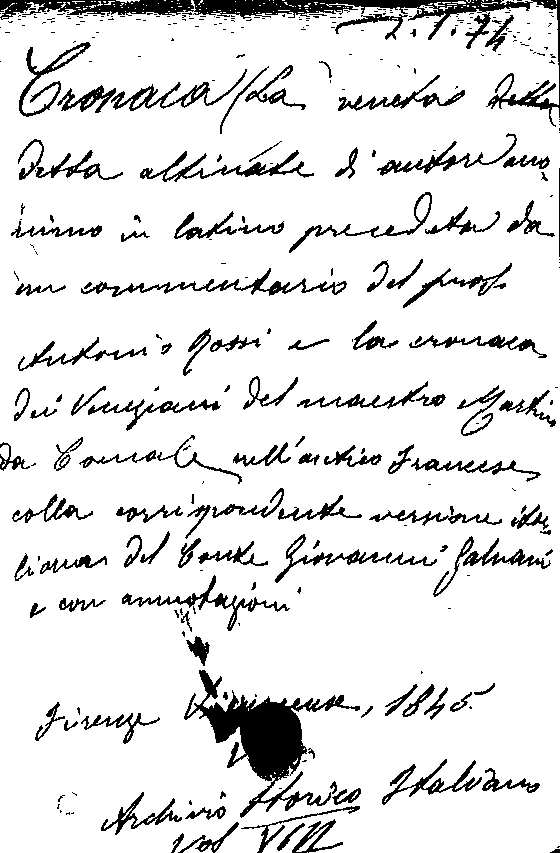 2.1.74
Cronaca (La veneta detta
detta altinate di autore ano
nimo in latino preceduta da
un commentario del prof.
Antonio Rossi e la cronaca
dei Veneziani del maestro Martin
da Canale nell'antico francese
colla corrispondente versione ita
liana del Conte Giovanni Galvani
e con annotazioni
Firenze Vieusseux, 1845
Archivio Storico Italiano
Vol VIII